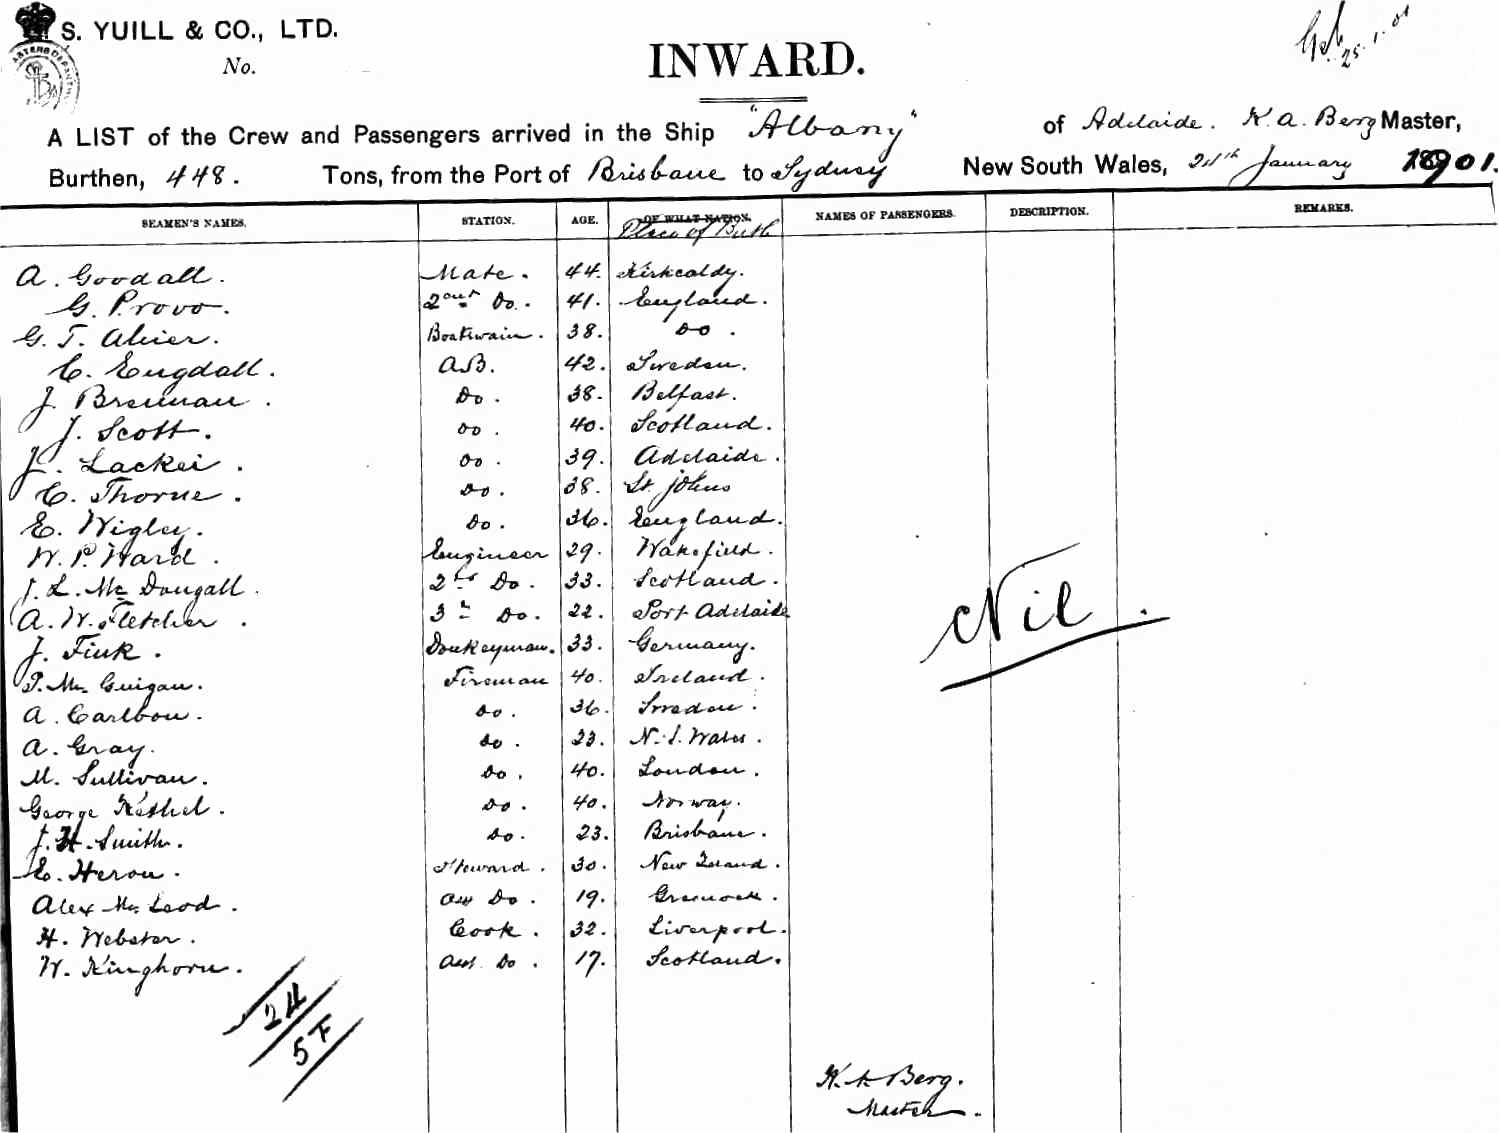 S. YUILL & CO., LTD.
No.
INWARD.
25.1.01
A LIST of the Crew and Passengers arrived in the Ship "Albany" of Adelaide. K. A. Berg Master,
Burthen, 448. Tons, from the Port of Brisbane to Sydney New South Wales, 24th January 1901.
SEAMEN'S NAMES. STATION. AGE. OF WHAT NATION. Place of Birth NAMES OF PASSENGERS. DESCRIPTION. REMARKS.
A. Goodall. Mate. 44. Kirkcaldy.
G. Provo. 2nd Do. 41. England.
G. T. Boatswain. 38. Do.
C. Engdall. AB. 42. Sweden.
J. Brennan. Do. 38. Belfast.
J. Scott. Do. 40. Scotland.
L. Lackei. Do. 39. Adelaide.
C. Thorne. Do. 38. St. Johns
E. Wigley. Do. 36. England.
W. P. Ward. Engineer 29. Wakefield.
J. L. Mc Dougall. 2nd Do. 33. Scotland.
A. W. Fletcher. 3rd Do. 22. Port Adelaide
J. Fink. Donkeyman. 33. Germany.
P. Mc Guigan. Fireman 40. Ireland.
A. Carlbou. Do. 36. Sweden.
A. Gray. Do. 23. N. S. Wales.
M. Sullivan. Do. 40. London.
George Do. 40. Norway.
J. H. Smith. Do. 23. Brisbane.
E. Heron. Steward. 30. New Zeland.
Alex Mc Leod. Ass Do. 19. Greenock.
H. Webster. Cook. 32. Liverpool.
W. Kinghorn. Asst. Do. 17. Scotland.
Nil.
24
5 F
K. A. Berg.
Master.